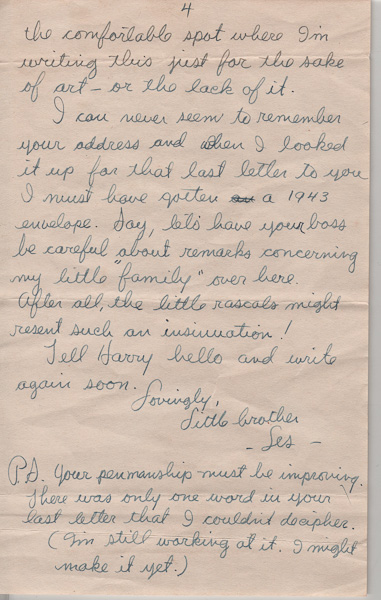 4
the comfortable spot where I'm
writing this just for the sake
of art - or the lack of it.
I can never seem to remember
your address and when I looked
it up for that last letter to you
I must have gotten an a 1943
envelope. Say, let's have your boss
be careful about remarks concerning
my little "family" over here.
After all, the little rascals might
resent such an insinuation!
Tell Harry hello and write
again soon.
Lovingly,
Little brother
- Les -
P.S. Your penmanship must be improving.
There was only one word in your
last letter that I couldn't decipher.
(I'm still working at it. I might
make it yet.)